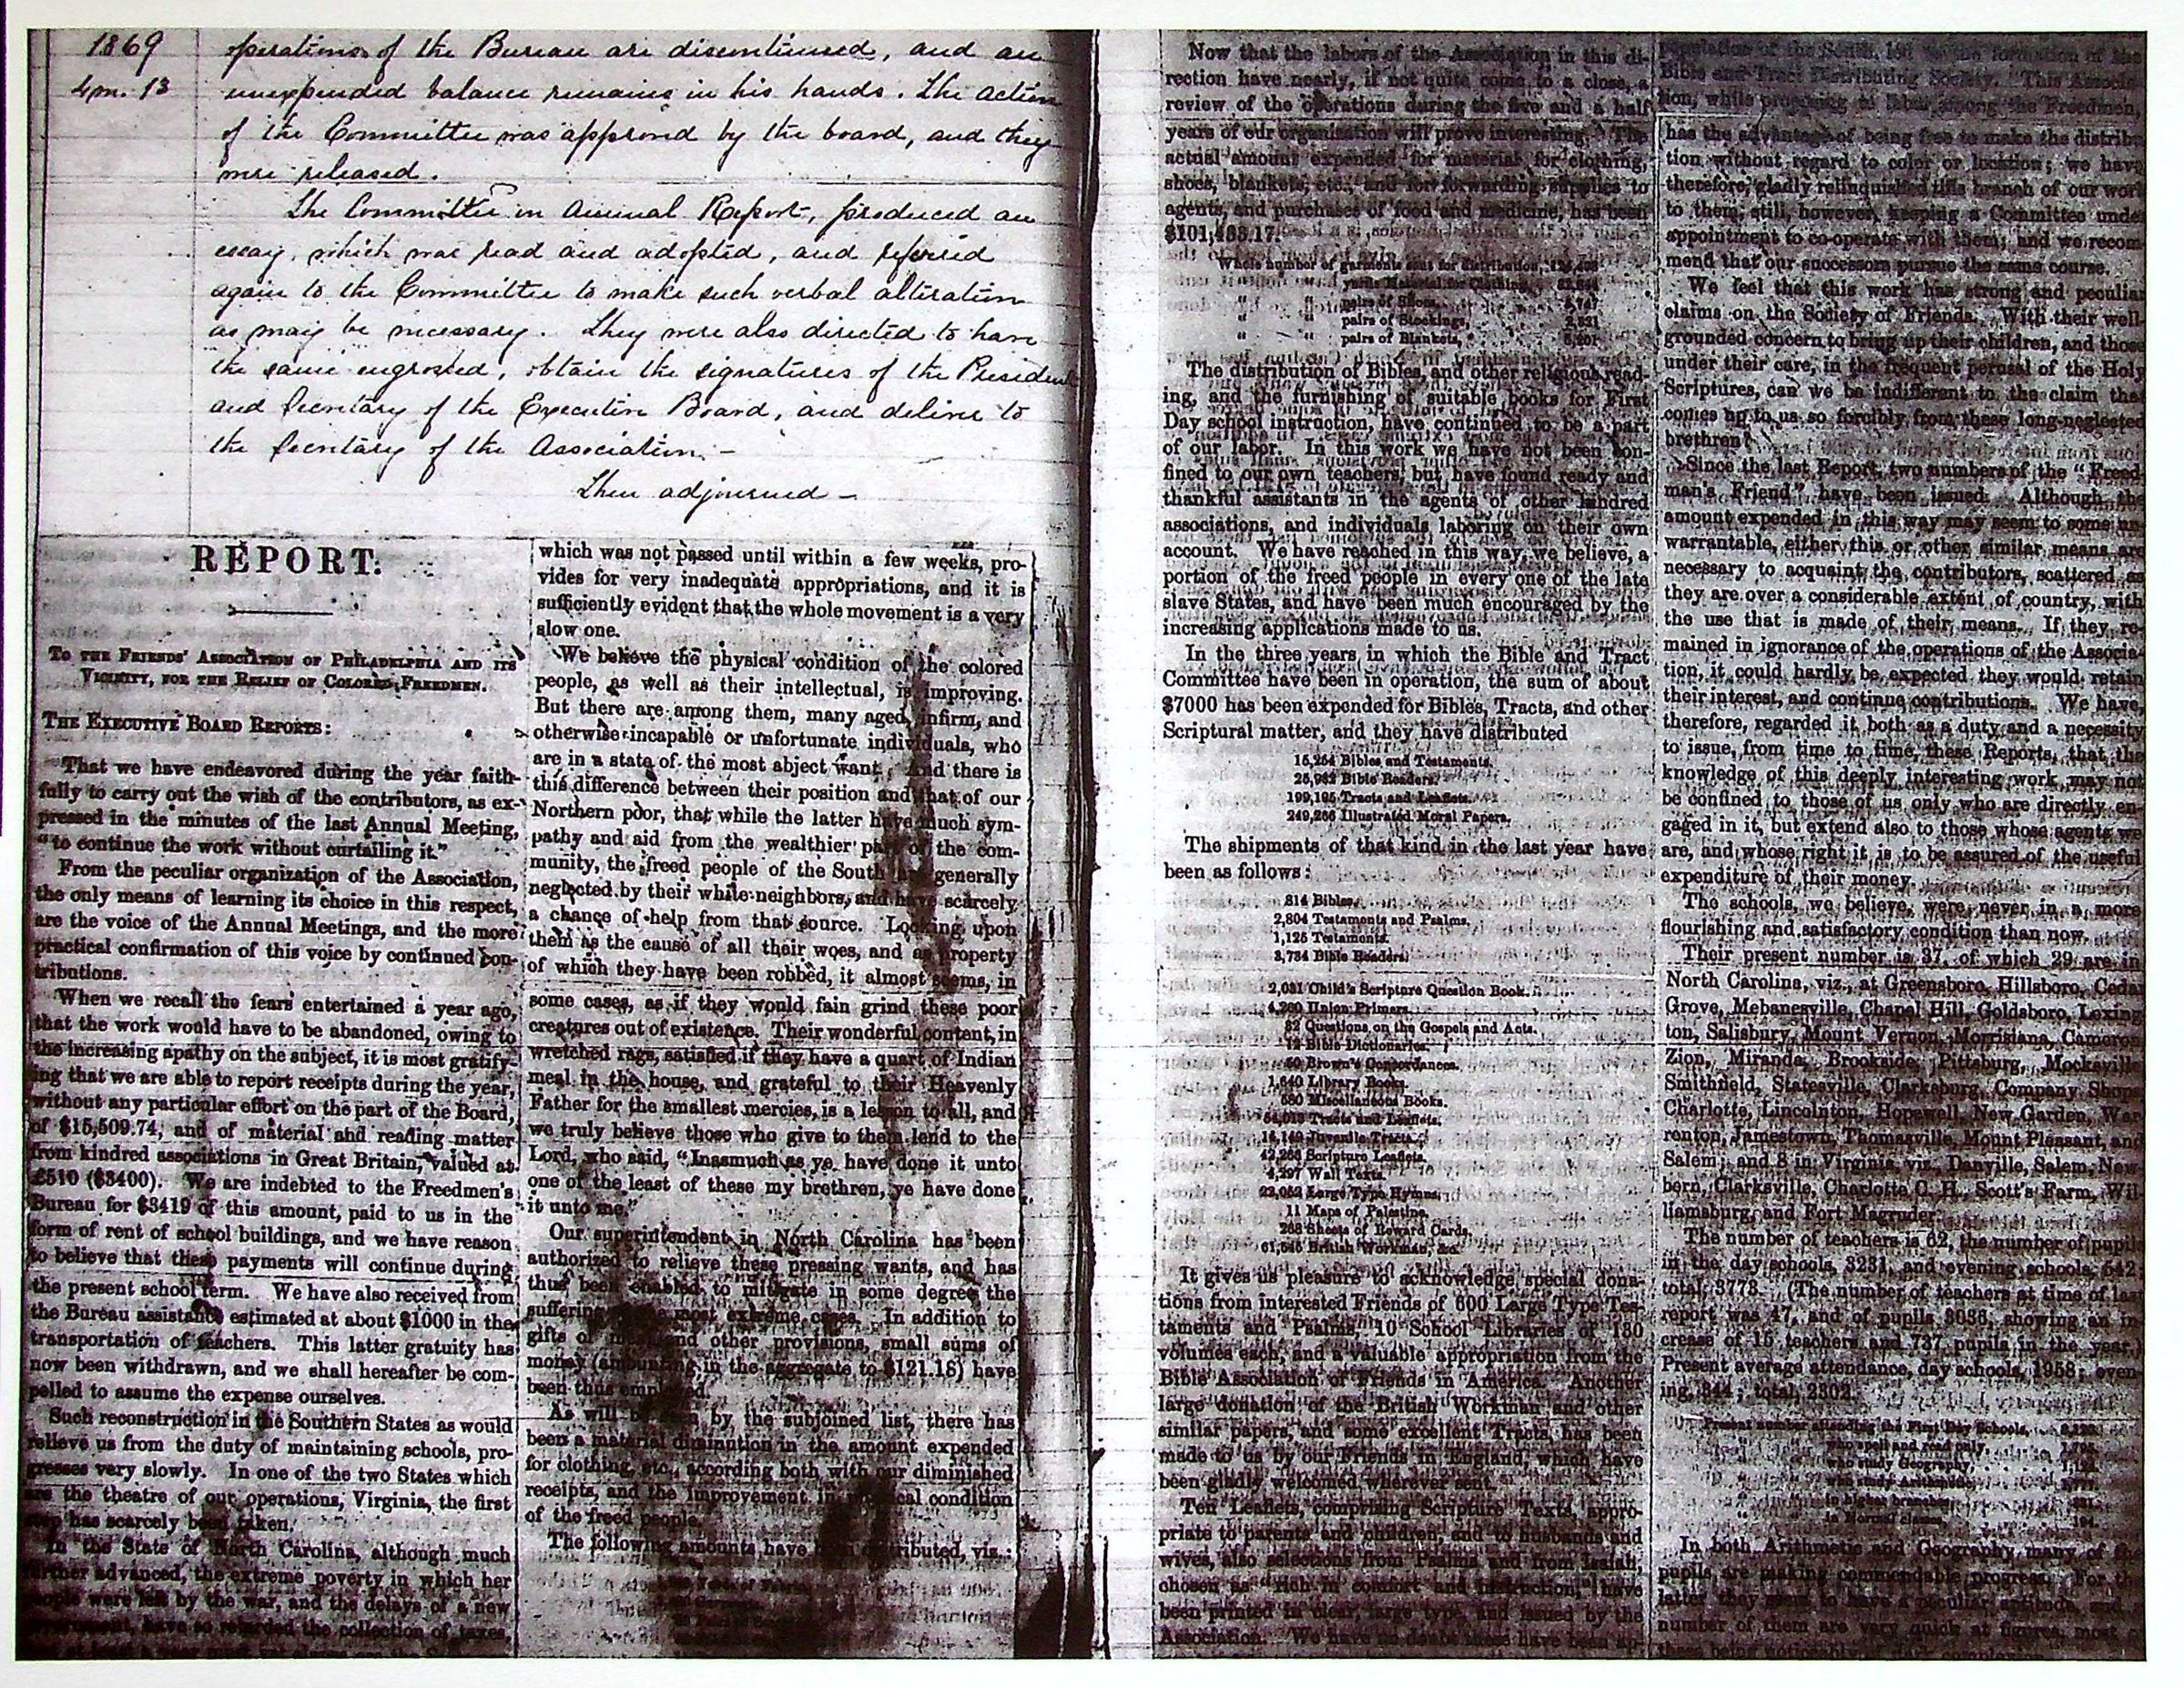 1869
4 m. 13
operations of the Bureau are discontinued, and an
unexpended balance remains in his hands. The action
of the Committee was approved by the board, and they
were released.
The Committee on Annual Report, produced an
essay, which was read and adopted, and referred
again to the Committee to make such verbal alteration
as may be necessary. They were also directed to have
the same engrossed, obtain the signatures of the President
and Secretary of the Executive Board, and deliver to
the Secretary of the Association. –
Then adjourned –
REPORT:
TO THE FRIENDS' ASSOCIATION OF PHILADELPHIA AND ITS
VICINITY, FOR THE RELIEF OF COLORED FREEDMEN.
THE EXECUTIVE BOARD REPORTS:
That we have endeavored during the year faith-
fully to carry out the wish of the contributors, as ex-
pressed in the minutes of the last Annual Meeting,
"to continue the work without curtailing it."
From the peculiar organization of the Association,
the only means of learning its choice in this respect,
are the voice of the Annual Meetings, and the more
practical confirmation of this voice by continued con-
tributions.
When we recall the fears entertained a year ago,
that the work would have to be abandoned, owing to
the increasing apathy on the subject, it is most gratify-
ing that we are able to report receipts during the year,
without any particular effort on the part of the Board,
of $15,509.74, and of material and reading matter
from kindred associations in Great Britain, valued at
£510 ($3400). We are indebted to the Freedmen's
Bureau for $3419 of this amount, paid to us in the
form of rent of school buildings, and we have reason
to believe that these payments will continue during
the present school term. We have also received from
the Bureau assistance estimated at about $1000 in the
transportation of teachers. This latter gratuity has
now been withdrawn, and we shall hereafter be com-
pelled to assume the expense ourselves.
Such reconstruction in the Southern States as would
relieve us from the duty of maintaining schools, pro-
gresses very slowly. In one of the two States which
are the theatre of our operations, Virginia, the first
step has scarcely been taken.
In the State of North Carolina, although much
further advanced, the extreme poverty in which her
people were left by the war, and the delays of a new
government, have so retarded the collection of taxes,
which was not passed until within a few weeks, pro-
vides for very inadequate appropriations, and it is
sufficiently evident that the whole movement is a very
slow one.
We believe the physical condition of the colored
people, as well as their intellectual, is improving.
But there are among them, many aged, infirm, and
otherwise incapable or unfortunate individuals, who
are in a state of the most abject want. And there is
this difference between their position and that of our
Northern poor, that while the latter have much sym-
pathy and aid from the wealthier part of the com-
munity, the freed people of the South are generally
neglected by their white neighbors, and have scarcely
a chance of help from that source. Looking upon
them as the cause of all their woes, and as property
of which they have been robbed, it almost seems, in
some cases, as if they would fain grind these poor
creatures out of existence. Their wonderful content, in
wretched rags, satisfied if they have a quart of Indian
meal in the house, and grateful to their Heavenly
Father for the smallest mercies, is a lesson to all, and
we truly believe those who give to them lend to the
Lord, who said, "Inasmuch as ye have done it unto
one of the least of these my brethren, ye have done
it unto me."
Our superintendent in North Carolina has been
authorized to relieve these pressing wants, and has
thus been enabled to mitigate in some degree the
suffering most extreme cases. In addition to
gifts of and other provisions, small sums of
money (amounting in the aggregate to $121.18) have
been thus employed.
As will be seen by the subjoined list, there has
been a material diminution in the amount expended
for clothing, etc., according both with our diminished
receipts, and the improvement in physical condition
of the freed people.
The following amounts have been distributed, viz.:
Now that the labors of the Association in this di-
rection have nearly, if not quite come to a close, a
review of the operations during the five and a half
years of our organization will prove interesting. The
actual amount expended for material for clothing,
shoes, blankets, etc., and for forwarding supplies to
agents, and purchases of food and medicine, has been
Whole number of garments sent for distribution,
" " yards Material for Clothing,
" " pairs of Shoes,
" " pairs of Stockings,
" " pairs of Blankets,
The distribution of Bibles, and other religious read-
ing, and the furnishing of suitable books for First
Day school instruction, have continued to be a part
of our labor. In this work we have not been con-
fined to our own teachers, but have found ready and
thankful assistants in the agents of other kindred
associations, and individuals laboring on their own
account. We have reached in this way, we believe, a
portion of the freed people in every one of the late
slave States, and have been much encouraged by the
increasing applications made to us.
In the three years in which the Bible and Tract
Committee have been in operation, the sum of about
$7000 has been expended for Bibles, Tracts, and other
Scriptural matter, and they have distributed
15,254 Bibles and Testaments.
Bible Readers.
199,195 Tracts and Leaflets.
249,266 Illustrated Moral Papers.
The shipments of that kind in the last year have
been as follows:
814 Bibles.
2,804 Testaments and Psalms.
1,125 Testaments.
3,734 Bible Readers.
2,031 Child's Scripture Question Book.
4,260 Union Primers.
82 Questions on the Gospels and Acts.
12 Bible Dictionaries.
50 Brown's Concordances.
1,640 Library Books.
Miscellaneous Books.
Tracts and Leaflets.
Juvenile Tracts.
Scripture Leaflets.
4,297 Wall Texts.
Large Type Hymns.
11 Maps of Palestine.
Sheets of Reward Cards.
British Workman, &c.
It gives us pleasure to acknowledge special dona-
tions from interested Friends of 600 Large Type Tes-
taments and Psalms, 10 School Libraries of 130
volumes each, and a valuable appropriation from the
Bible Association of Friends in America. Another
large donation of the British Workman and other
similar papers, and some excellent Tracts, has been
made to us by our Friends in England, which have
been gladly welcomed wherever sent.
Ten Leaflets, comprising Scripture Texts, appro-
priate to parents and children, and to husbands and
wives, also selections from Psalms and from Isaiah,
chosen as "rich in comfort and instruction," have
been printed in clear, large type, and issued by the
Association. We have no doubt these have been ap-
population of the South, led to the formation of the
Bible and Tract Distributing Society. This Associa-
tion, while proposing to labor among the Freedmen,
has the advantage of being free to make the distribu-
tion without regard to color or location; we have
therefore, gladly relinquished this branch of our work
to them, still, however, keeping a Committee under
appointment to co-operate with them; and we recom-
mend that our successors pursue the same course.
We feel that this work has strong and peculiar
claims on the Society of Friends. With their well-
grounded concern to bring up their children, and those
under their care, in the frequent perusal of the Holy
Scriptures, can we be indifferent to the claim that
comes up to us so forcibly from these long-neglected
brethren?
Since the last Report, two numbers of the "Freed-
man's Friend" have been issued. Although the
amount expended in this way may seem to some un-
warrantable, either this or other similar means are
necessary to acquaint the contributors, scattered as
they are over a considerable extent of country, with
the use that is made of their means. If they re-
mained in ignorance of the operations of the Associa-
tion, it could hardly be expected they would retain
their interest, and continue contributions. We have,
therefore, regarded it both as a duty and a necessity
to issue, from time to time, these Reports, that the
knowledge of this deeply interesting work may not
be confined to those of us only who are directly en-
gaged in it, but extend also to those whose agents we
are, and whose right it is to be assured of the useful
expenditure of their money.
The schools, we believe, were never in a more
flourishing and satisfactory condition than now.
Their present number is 37, of which 29 are in
North Carolina, viz., at Greensboro, Hillsboro, Cedar
Grove, Mebanesville, Chapel Hill, Goldsboro, Lexing-
ton, Salisbury, Mount Vernon, Morrisiana, Cameron,
Zion, Miranda, Brookside, Pittsburg, Mocksville,
Smithfield, Statesville, Clarksburg, Company Shops,
Charlotte, Lincolnton, Hopewell, New Garden, War-
renton, Jamestown, Thomasville, Mount Pleasant, and
Salem; and 8 in Virginia, viz., Danville, Salem, New-
bern, Clarksville, Charlotte C. H., Scott's Farm, Wil-
liamsburg, and Fort Magruder.
The number of teachers is 62, the number of pupils
in the day schools, 3231, and evening schools, 542;
total, 3773. (The number of teachers at time of last
report was 47, and of pupils 3036, showing an in-
crease of 15 teachers and 737 pupils in the year.)
Present average attendance, day schools, 1958; even-
ing, 344; total, 2302.
Present number attending the First Day Schools,
" who spell and read only,
" who study Geography,
" who study Arithmetic,
" in higher branches,
" in Normal classes,
In both Arithmetic and Geography, many of the
pupils are making commendable progress. For the
latter they seem to have a peculiar aptitude, and
number of them are very quick at figures, most of